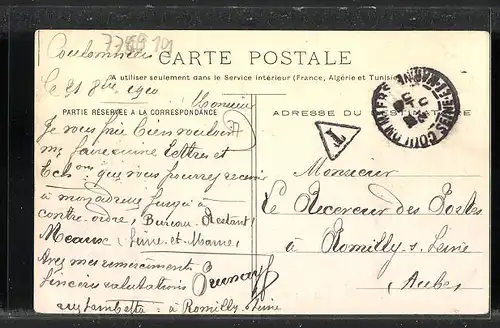 Coulommiers
CARTE POSTALE
A utiliser seulement dans le Service intérieur (France, Algérie et Tunisie
Le 21 8bre 1910
Monsieur
PARTIE RÉSERVÉE A LA CORRESPONDANCE
ADRESSE DU DESTINATAIRE
Je vous prie bien vouloir
me faire suivre lettres et
que vous pourrez recevoir
à mon adresse jusqu'à
contre-ordre, Bureau Restant,
Meaux (Seine-et-Marne)
Avec mes remerciements
Sincères salutations
à Romilly s. Seine
T
COULOMMIERS
SEINE ET MARNE
Monsieur
Le Receveur des Postes
à Romilly s. Seine
(Aube)